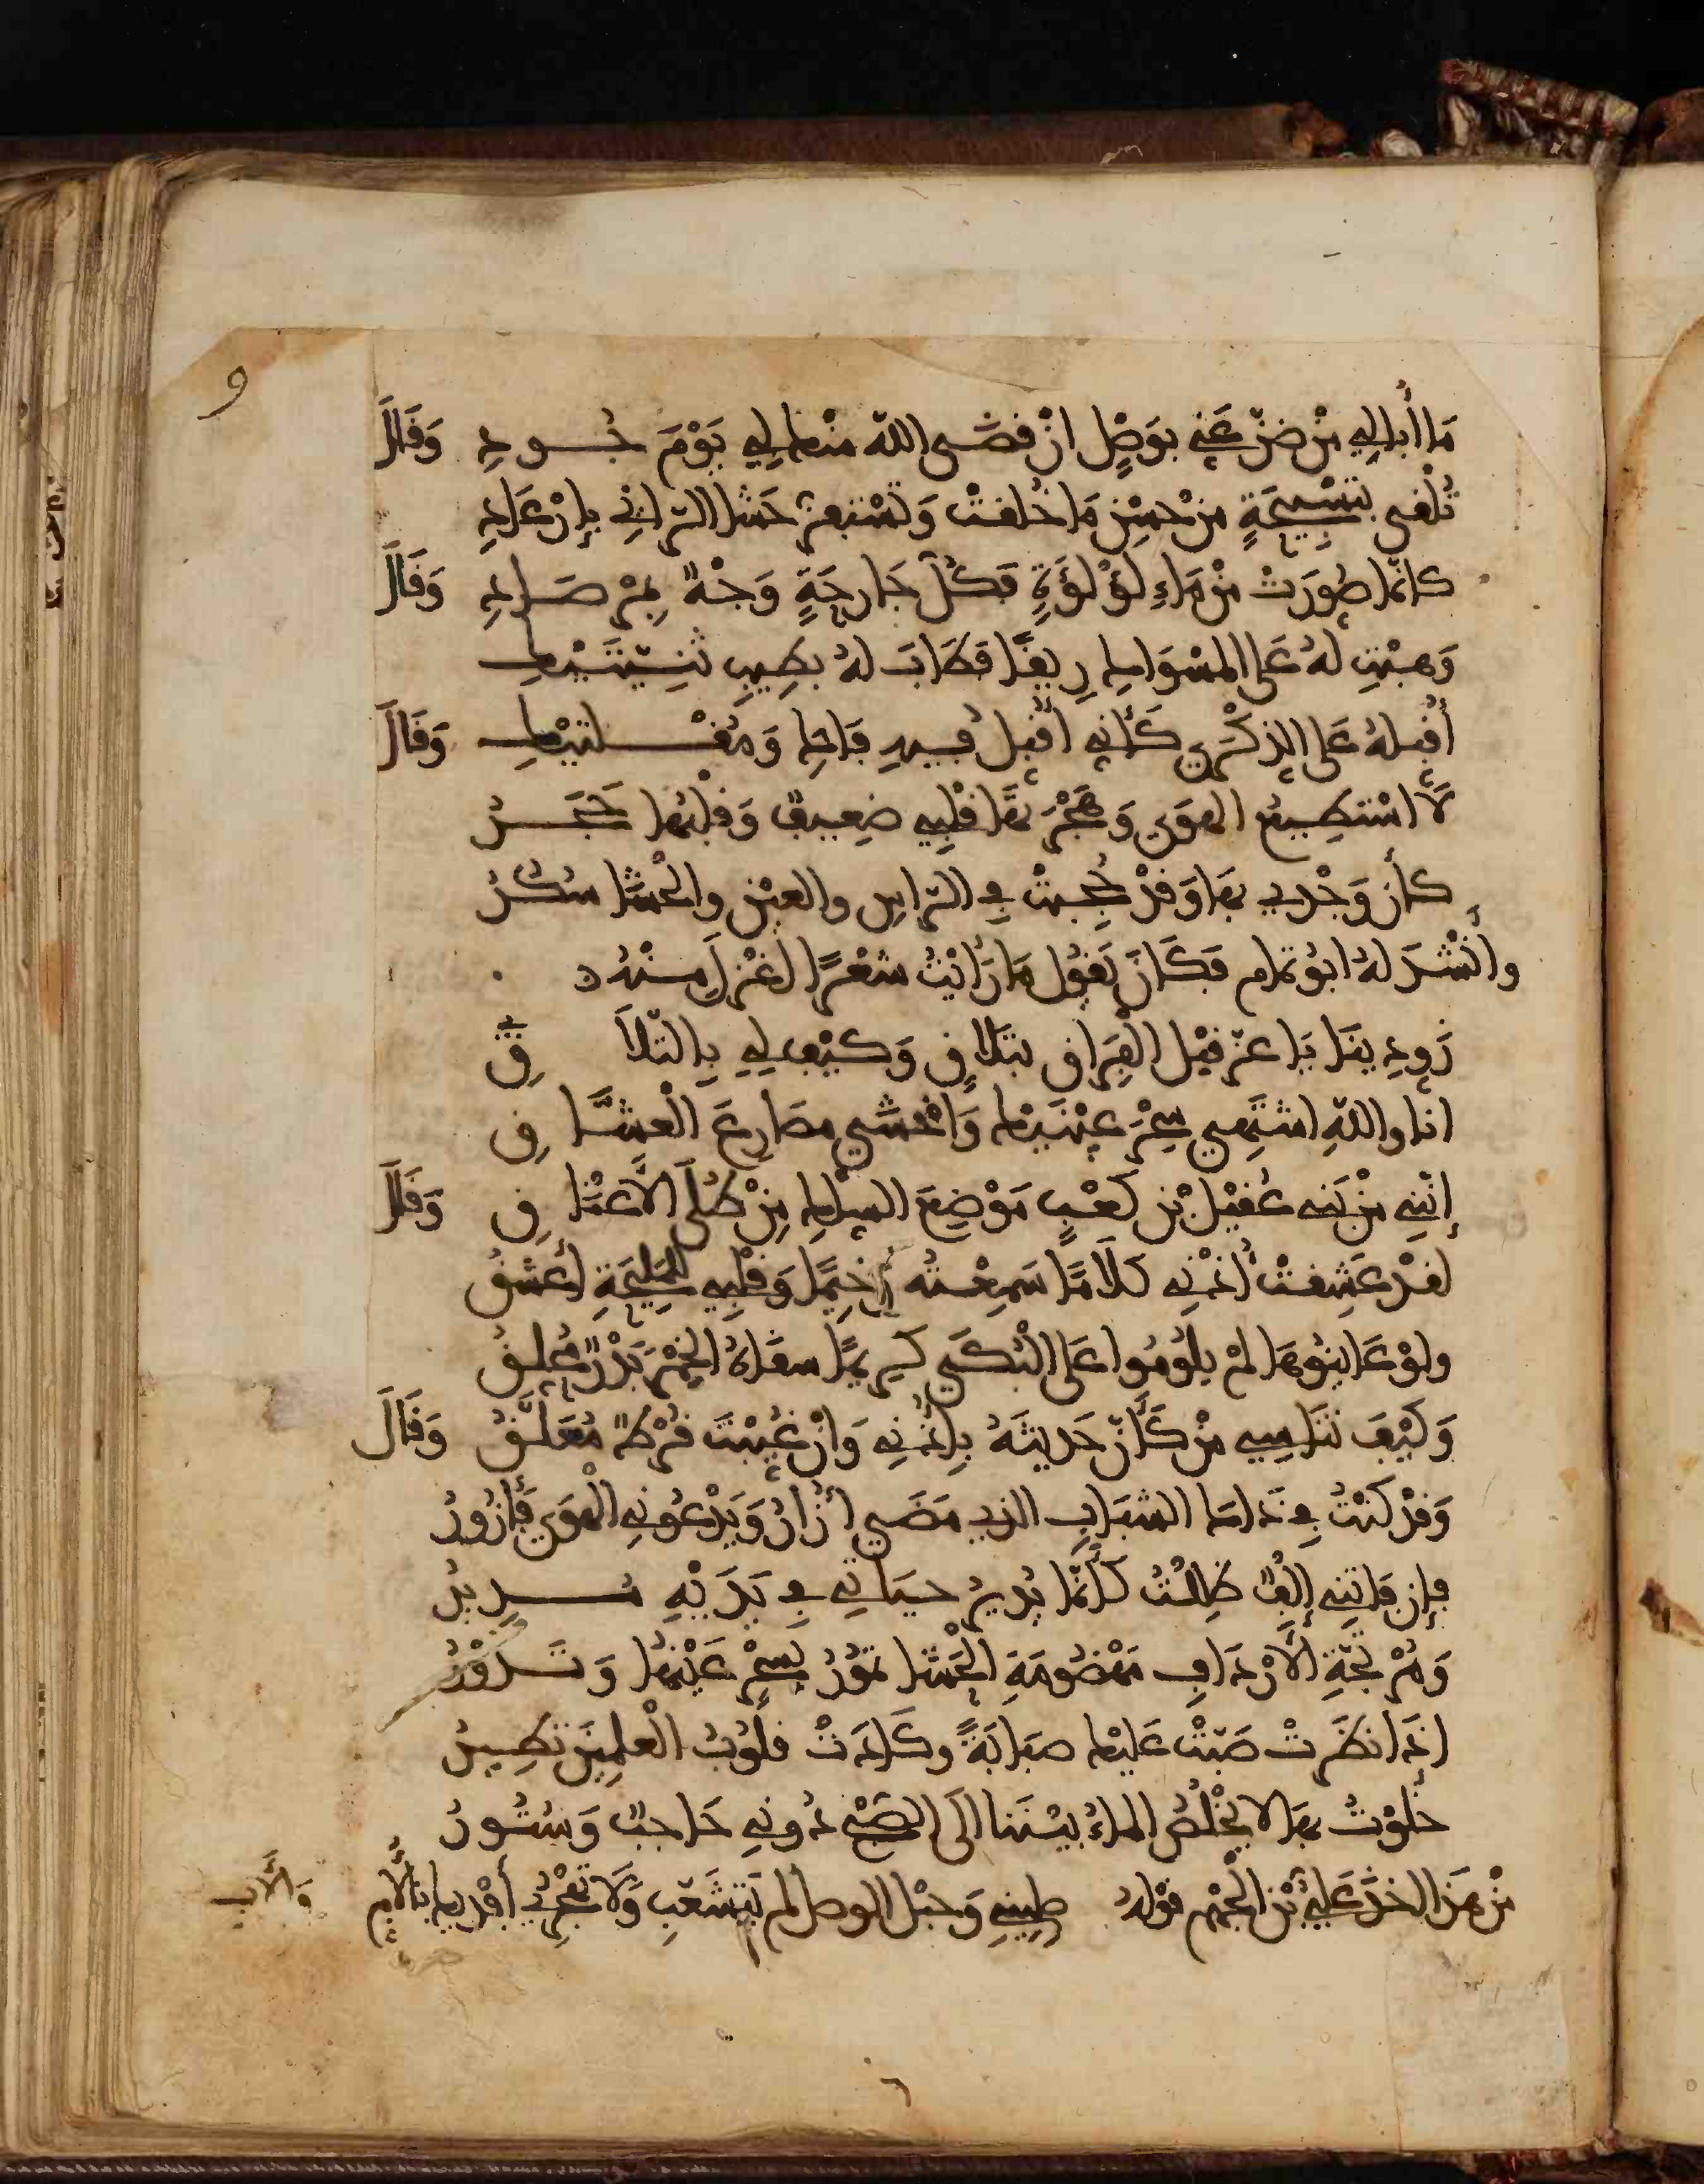 و
مَا أُبالِي مَنْ ضَنّ عَنِّي بِوَصْلٍ انْ قَضَى اللهُ مِنْهَا لِي يَوْمَ جُودِ وَقَالَ
تُلْقَى بِتَسْبِيحَةٍ مِنْ حُسْنِ مَا خُلِقَتْ وَتَسْتَفِزُّ حَشَا الرّائِي بِإِرْعَادِ
كَأنّما صُوِّرَتْ مِنْ مَاءِ لُؤْلُؤَةٍ فَكُلُّ جَارِحَةٍ وَجْهٌ بِمِرْصَادِ وَقَالَ
وَهَبْتِ لَهُ عَلَى المِسْوَاكِ رِيقًا فَطَابَ لَهُ بِطِيبِ ثَنِيَّتَيْكِ
أُقَبِّلُهُ عَلَى الذِّكْرَى كَأَنِّي أُقَبِّلُ فِيهِ فَاكِ وَمُقْلَتَيْكِ وَقَالَ
لَا اسْتَطِيعُ الهَوَى وَهِجْرَتَهَا قَلْبِي ضَعِيفٌ وَقَلْبُهَا حَجَرُ
كَأَنّ وَجْدِي بِهَا وَقَدْ حُجِبَتْ فِي الرَّاسِ وَالعَيْنِ وَالحَشَا سُكُرُ
وأَنْشَدَ لهُ ابُو تمام فَكَانَ يَقُولُ مَا رَأَيْتُ شعْرًا أَغْزَلَ مِنْهُ
زَوِّدِينَا يَا عَزّ قَبْلَ الْفِرَاقِ بِتَلَاقٍ وَكَيْفَ لِي بِالتّلاَقِ
انا واللهِ اشْتَهِي سِحْرَ عَيْنَيْكِ وَأَخْشَى مَصَارِعَ الْعُشَّاقِ
إِنَّنِي مِنْ بَنِي عُقَيْلِ بْنِ كَعْبٍ مَوْضِعَ السِّلْكِ مِنْ طُلَى الأَعْنَاقِ وَقَالَ
لَقدْ عَشِقتْ أُذْنِي كَلَامًا سَمِعْتُهُ رَخِيمًا وَقَلْبِي لِلْمَلِيحَةِ أَعْشَقُ
ولوْ عَايَنُوهَا لَمْ يَلُومُوا عَلَى الْبُكَى كَرِيمًا سَقَاهُ الخَمْرَ بَدْرٌ مُحَلِّقُ
وَكَيْفَ تَنَاسِي مَنْ كَأَنّ حَدِيثَهُ بِأُذْنِي وَانْ غُيِّبْتَ قُرْطٌ مُعَلَّقُ وَقَالَ
وَقَدْ كُنْتُ فِي ذَاكَ الشّبَابِ الّذِي مَضَى أُزَارُ وَيَدْعُونِي الْهَوَى فَأَزُورُ
فإن فَاتَنِي إِلْفٌ ظَلِلْتُ كَأَنّمَا يُدِيرُ حيَاتِي فِي يَدَيْهِ مُدِيرُ
وَمُرْتَجّةِ الأَرْدَافِ مَهْضُومَةِ الْحَشَا تَمُورُ بِسِحْرٍ عَيْنُهَا وَتَدُورُ
اذَا نَظَرَتْ صَبَّتْ عَلَيْكَ صَبَابَةً وكَادَتْ قُلُوبُ الْعلَمِينَ تَطِيرُ
خَلَوْتُ بِهَا لا يَخْلُصُ المَاءُ بَيْنَنا الَى الصُّبْحِ دُونِي حَاجِبٌ وَسُتُورُ
مِنْ هَذَا اخذ عَلِيُّ بْنُ الجَهْم قوْلَهُ صِلِينِي وَحَبْل الوصل لم يَتَشَعّبِ وَلَا تَهْجُرِي أَفْدِيكِ بالأُمِ وَالأَبِ